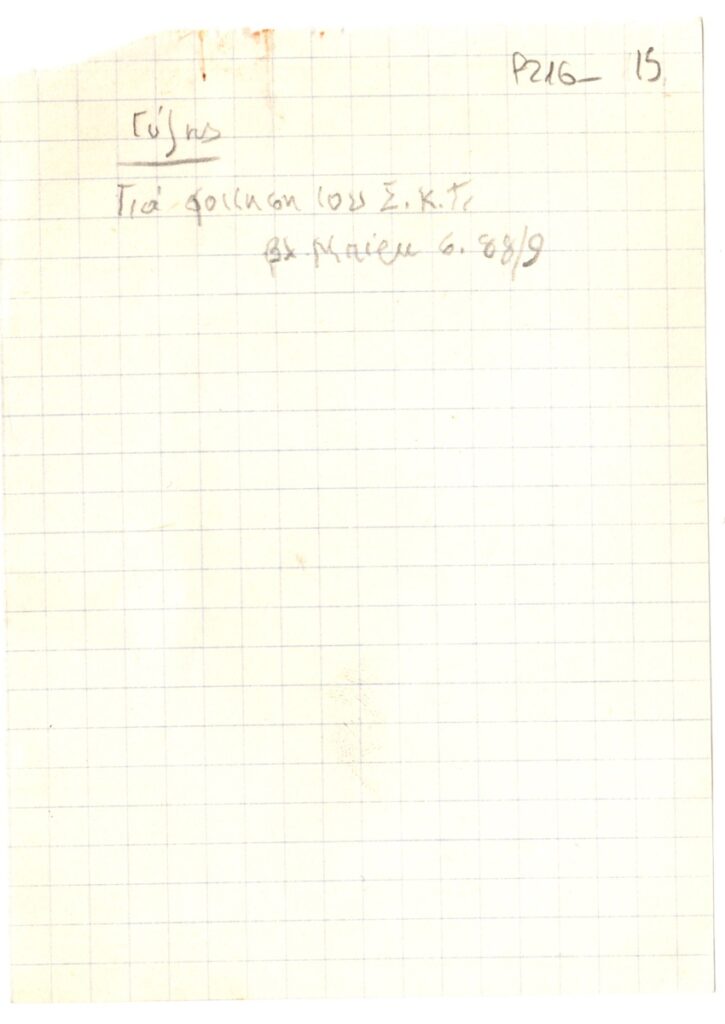 P216- 15
Γύζης
Γιά φοίτηση του Σ.Κ.Τ.
βλ. σ. 88/9